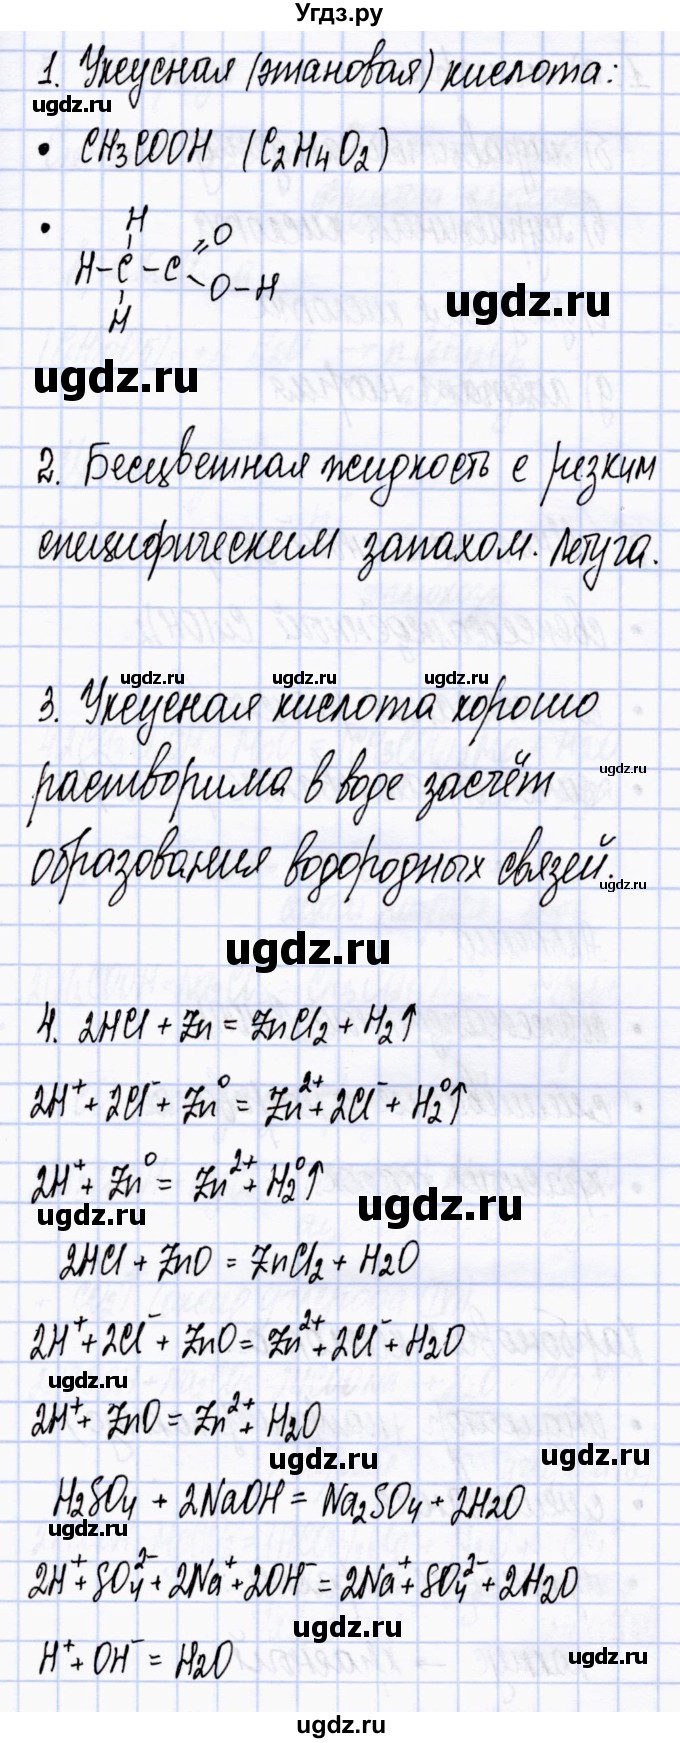 Угдз.ру
1. Уксусная (этановая) кислота:
ugdz.ru
• CH3COOH (C2H4O2)
•
H
O
H-C-C
O-H
H
ugdz.ru
ugdz.ru
2. Бесцветная жидкость с резким
специфическим запахом. Летуча.
ugdz.ru ugdz.ru ugdz.ru
3. Уксусная кислота хорошо
растворима в воде засчёт
ugdz.ru
образования водородных связей.
ugdz.ru
ugdz.ru
4. 2HCl + Zn = ZnCl2 + H2↑
2H⁺ + 2Cl⁻ + Zn⁰ = Zn²⁺ + 2Cl⁻ + H2⁰↑
2H⁺ + Zn⁰ = Zn²⁺ + H2⁰↑
ugdz.ru ugdz.ru
2HCl + ZnO = ZnCl2 + H2O
2H⁺ + 2Cl⁻ + ZnO = Zn²⁺ + 2Cl⁻ + H2O
ugdz.ru
2H⁺ + ZnO = Zn²⁺ + H2O
ugdz.ru ugdz.ru
H2SO4 + 2NaOH = Na2SO4 + 2H2O
ugdz.ru
2H⁺ + SO4²⁻ + 2Na⁺ + 2OH⁻ = 2Na⁺ + SO4²⁻ + 2H2O
ugdz.ru
H⁺ + OH⁻ = H2O
ugdz.ru
ugdz.ru